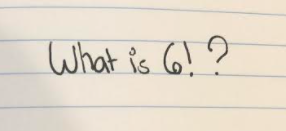 What is 6!?